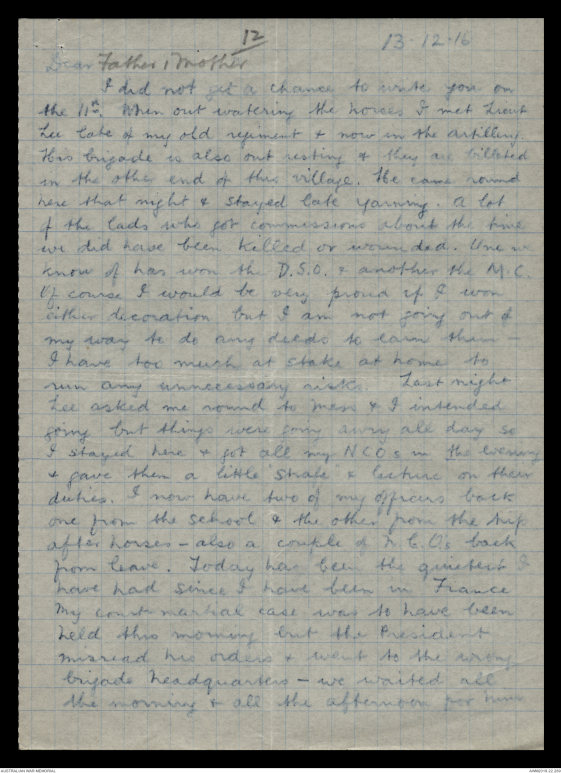 12
13.12.16
Dear Father & Mother
I did not get a chance to write you on
the 11th. When out watering the horses I met Lieut
Lee late of my old regiment & now in the artillery.
His brigade is also out resting & they are billeted
in the other end of this village. He came round
here that night & stayed late yarning. A lot
of the lads who got commissions about the time
we did have been killed or wounded. One we
know of has won the D.S.O. & another the M.C.
Of course I would be very proud if I won
either decoration but I am not going out of
my way to do any deeds to earn them –
I have too much at stake at home to
run any unnecessary risks. Last night
Lee asked me round to mess & I intended
going but things were going awry all day so
I stayed here & got all my NCOs in the evening
& gave them a little "strafe" & lecture on their
duties. I now have two of my officers back
one from the school & the other from the trip
after horses – also a couple of N.C.O's back
from leave. Today has been the quietest I
have had since I have been in France
My court martial case was to have been
held this morning but the President
misread his orders & went to the wrong
brigade headquarters – we waited all
the morning & all the afternoon for him
AUSTRALIAN WAR MEMORIAL